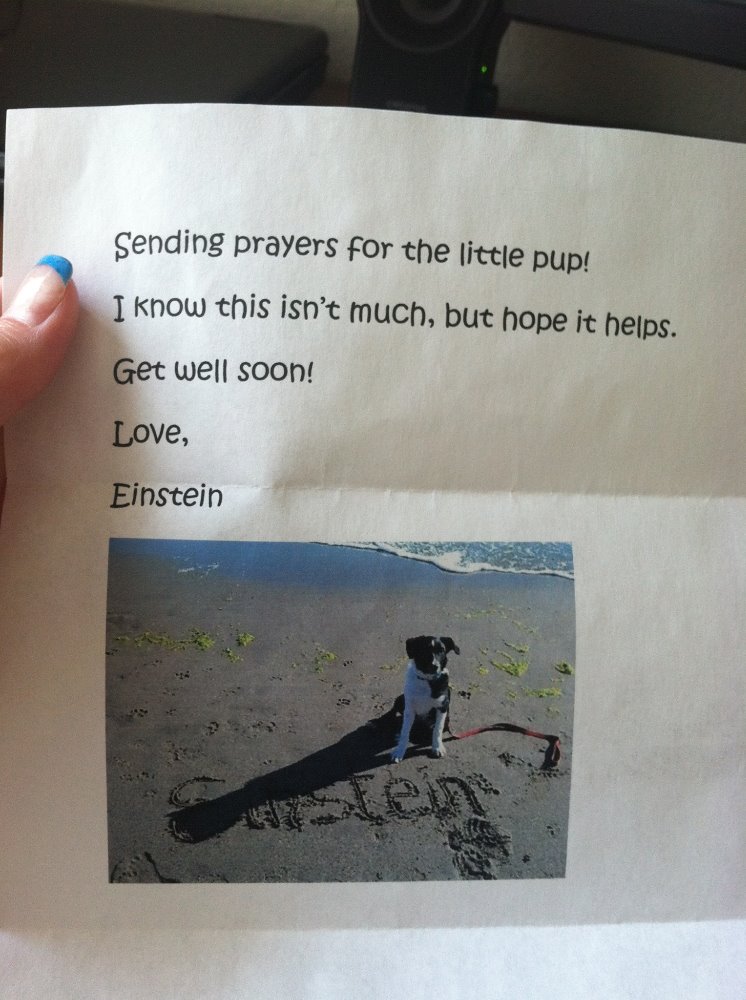 Sending prayers for the little pup!
I know this isn't much, but hope it helps.
Get well soon!
Love,
Einstein
Einstein